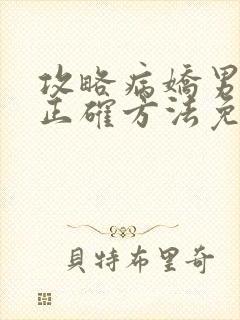 攻略病嬌男
正確方法免
貝特布里奇